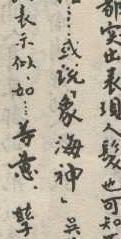 都突出表現人髮,也可知
…或說「象海神」。吳
表示似、如…等意。孳